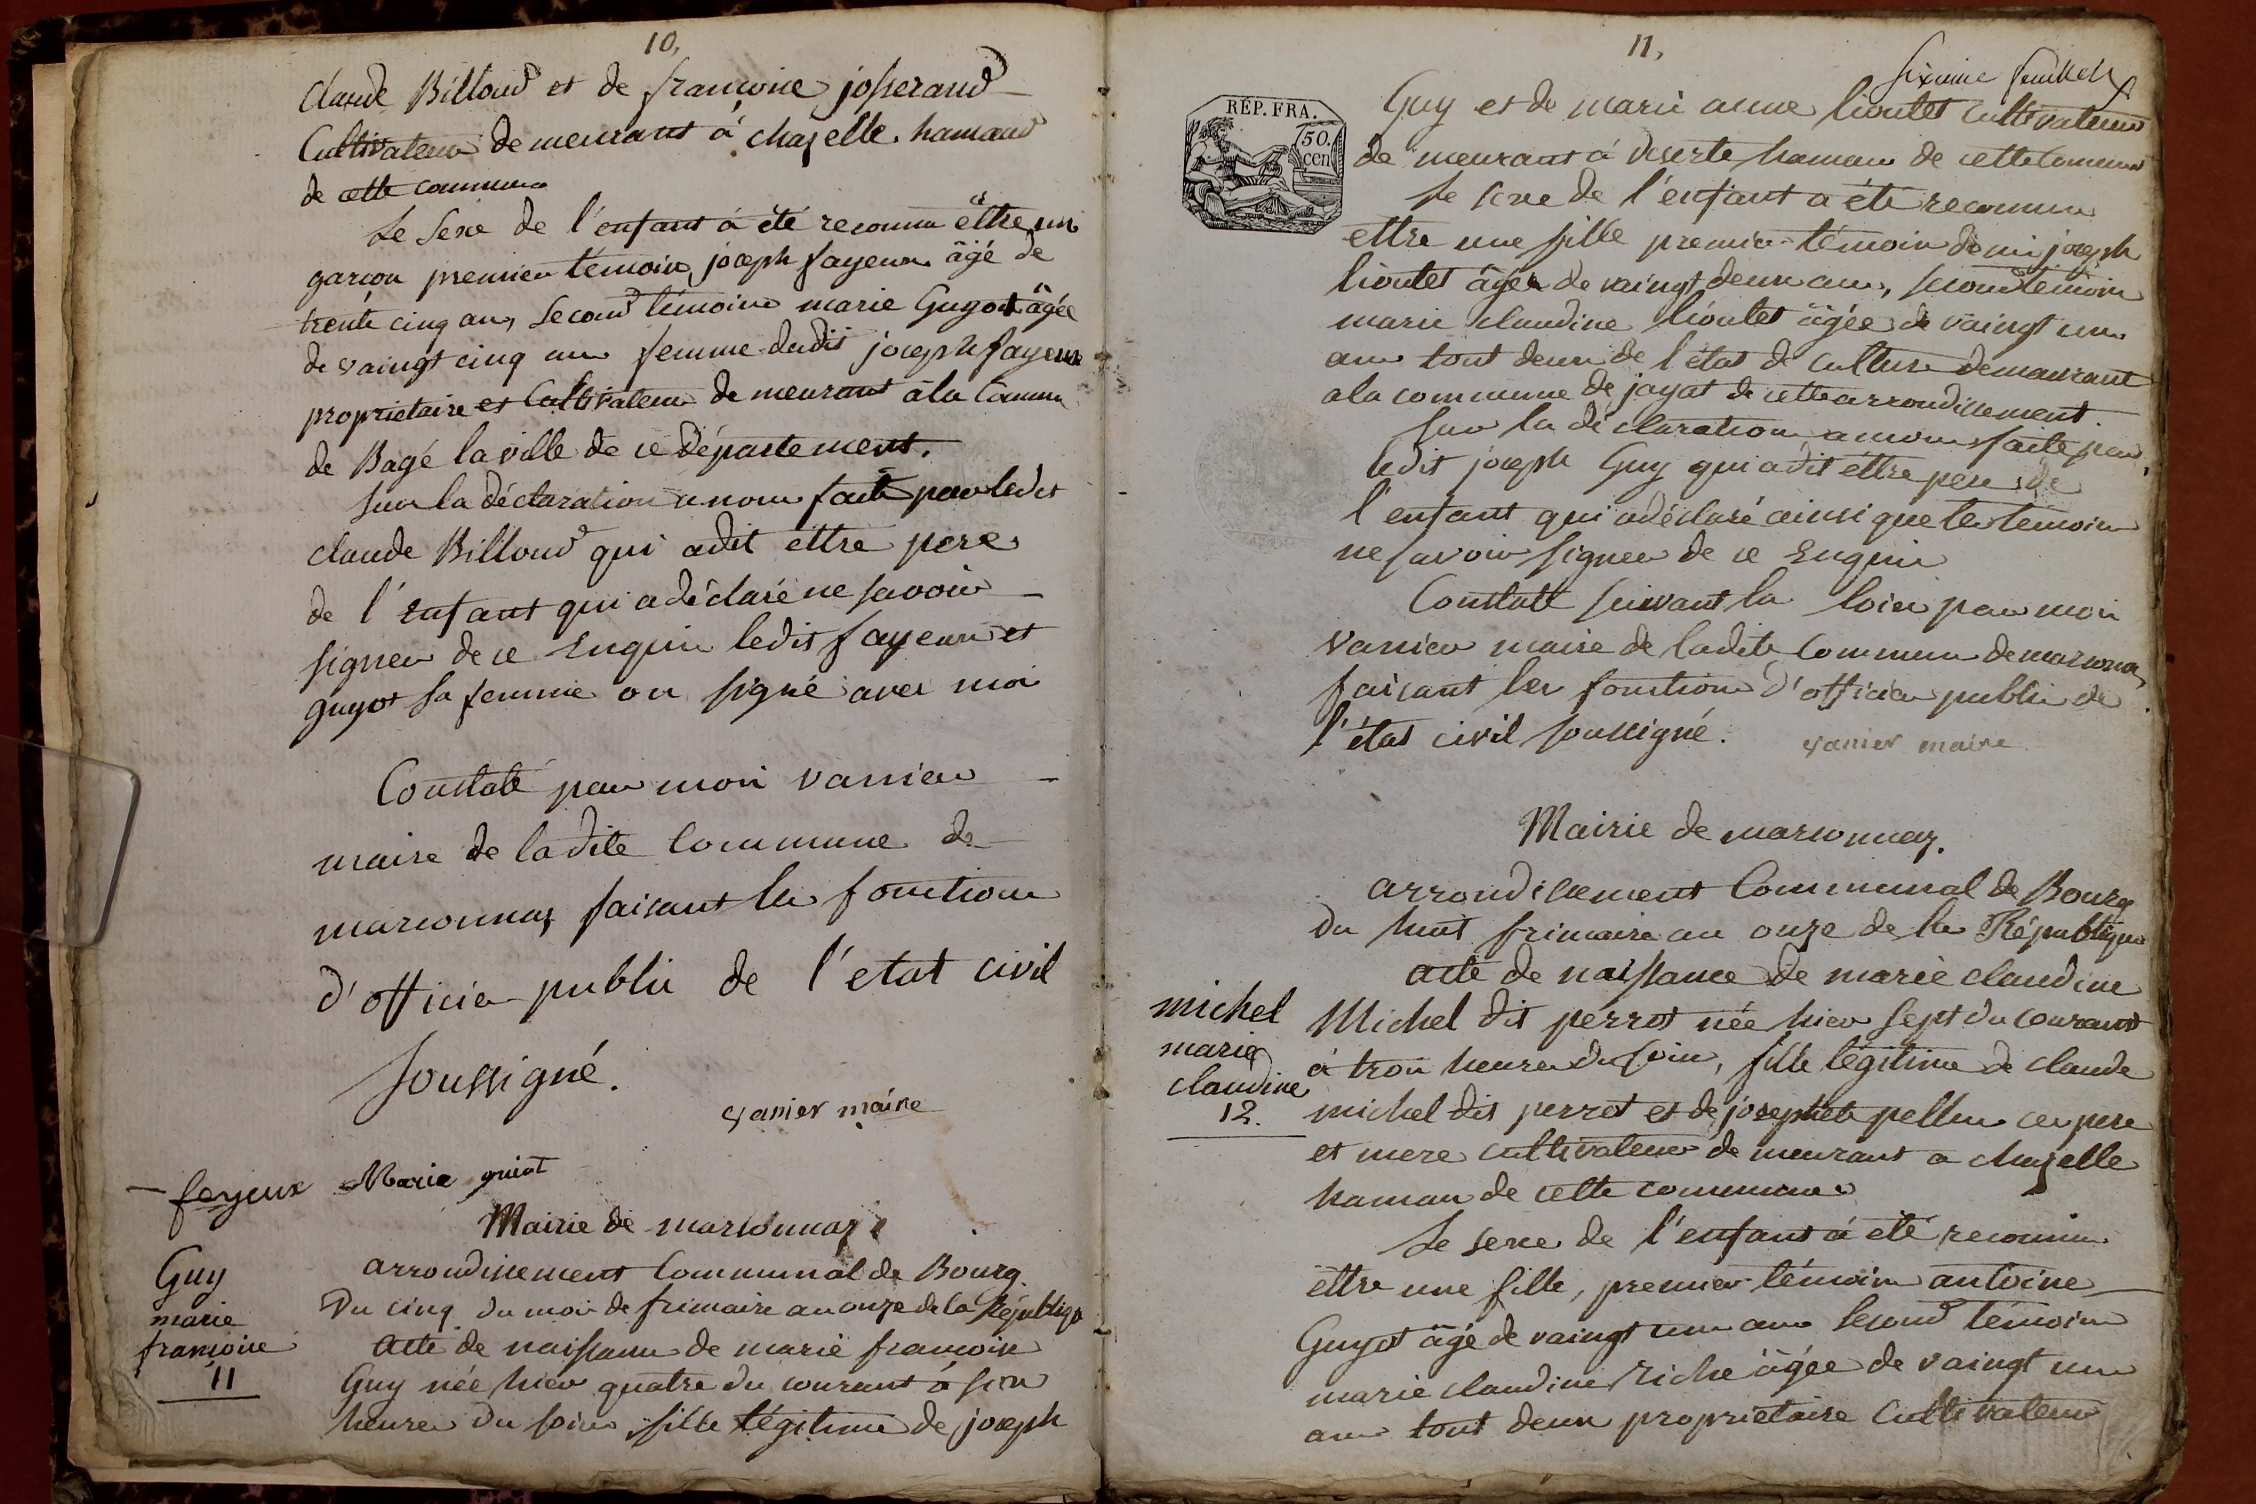 10,
Claude Billoud et de francoise josserand
Cultivateur demeurant á chazelle. hamaud
de cette commune
Le Sexe de l'enfant á été reconnu êttre un
garcon premier témoin joseph fayeux âgé de
trente cinq ans, Second témoins marie Guyot âgée
de vaingt cinq ans femme dudit joseph fayeux
proprietaire et Cultivateur demeurant ála Comune
de Bagé la ville de ce département.
Sur la déclaration a nous faite par ledit
claude Billoud qui adit éttre pere
de l'Enfant qui adéclaré ne savoir
signer de ce Enquis ledit fayeux et
guyot sa femme on signé avec moi
Constaté par moi vanier
maire de ladite Commune de
marsonnas faisant les fonctions
d'officier public de l'etat civil
Soussigné.
vanier maire
feyeux Marie guiot
Mairie de marsonnaz
Guy
marie
francoise
11
arrondissement Communal de Bourg
Du cinq du mois de frimaire an onze de la Républiqe
Acte de naissance de marie francoise
Guy née hier quatre du courant á six
heures du soir, fille légitime de joseph
11,
Sixieme feuillet
RÉP. FRA.
50.
cen
Guy et de marie anne lioutet cultivateurs
demeurant á deserte hamau de cette Comune
Le sexe de l'enfant a été reconnu
ettre une fille premier témoin denis joseph
lioutet âgés de vaingt deux ans, second témoin
marie claudine lioutet âgée de vaingt un
ans tout deux de l'état de culture demeurant
ala commune de jayat de cette arrondissement.
Sur la déclaration a nous faite par
ledit joseph Guy qui adit éttre pere de
l'enfant qui adéclaré ainsi que les témoins
ne savoir signer de ce Enquis
Constaté suivant la loix par moi
Vanier maire de ladite Commune de marsonas
faisant les fonctions d'officier public de
l'état civil soussigné. vanier maire
Mairie de marsonnaz.
arrondissement Communal de Bourg
du huit frimaire an onze de la République
acte de naissance de marie claudine
michel
marie
claudine
12.
Michel dit perret née hier sept du courant
á trois heures du soir, fille légitime de claude
michel dit perret et de josephete pellus ces pere
et mere cultivateur demeurant a chazelle
hamau de cette commune
Le sexe de l'enfant á été reconnu
éttre une fille, premier témoin antoine
Guyot âgé de vaingt un ans second témoin
marie claudine riche âgée de vaingt un
ans tout deux proprietaire Cultivateur